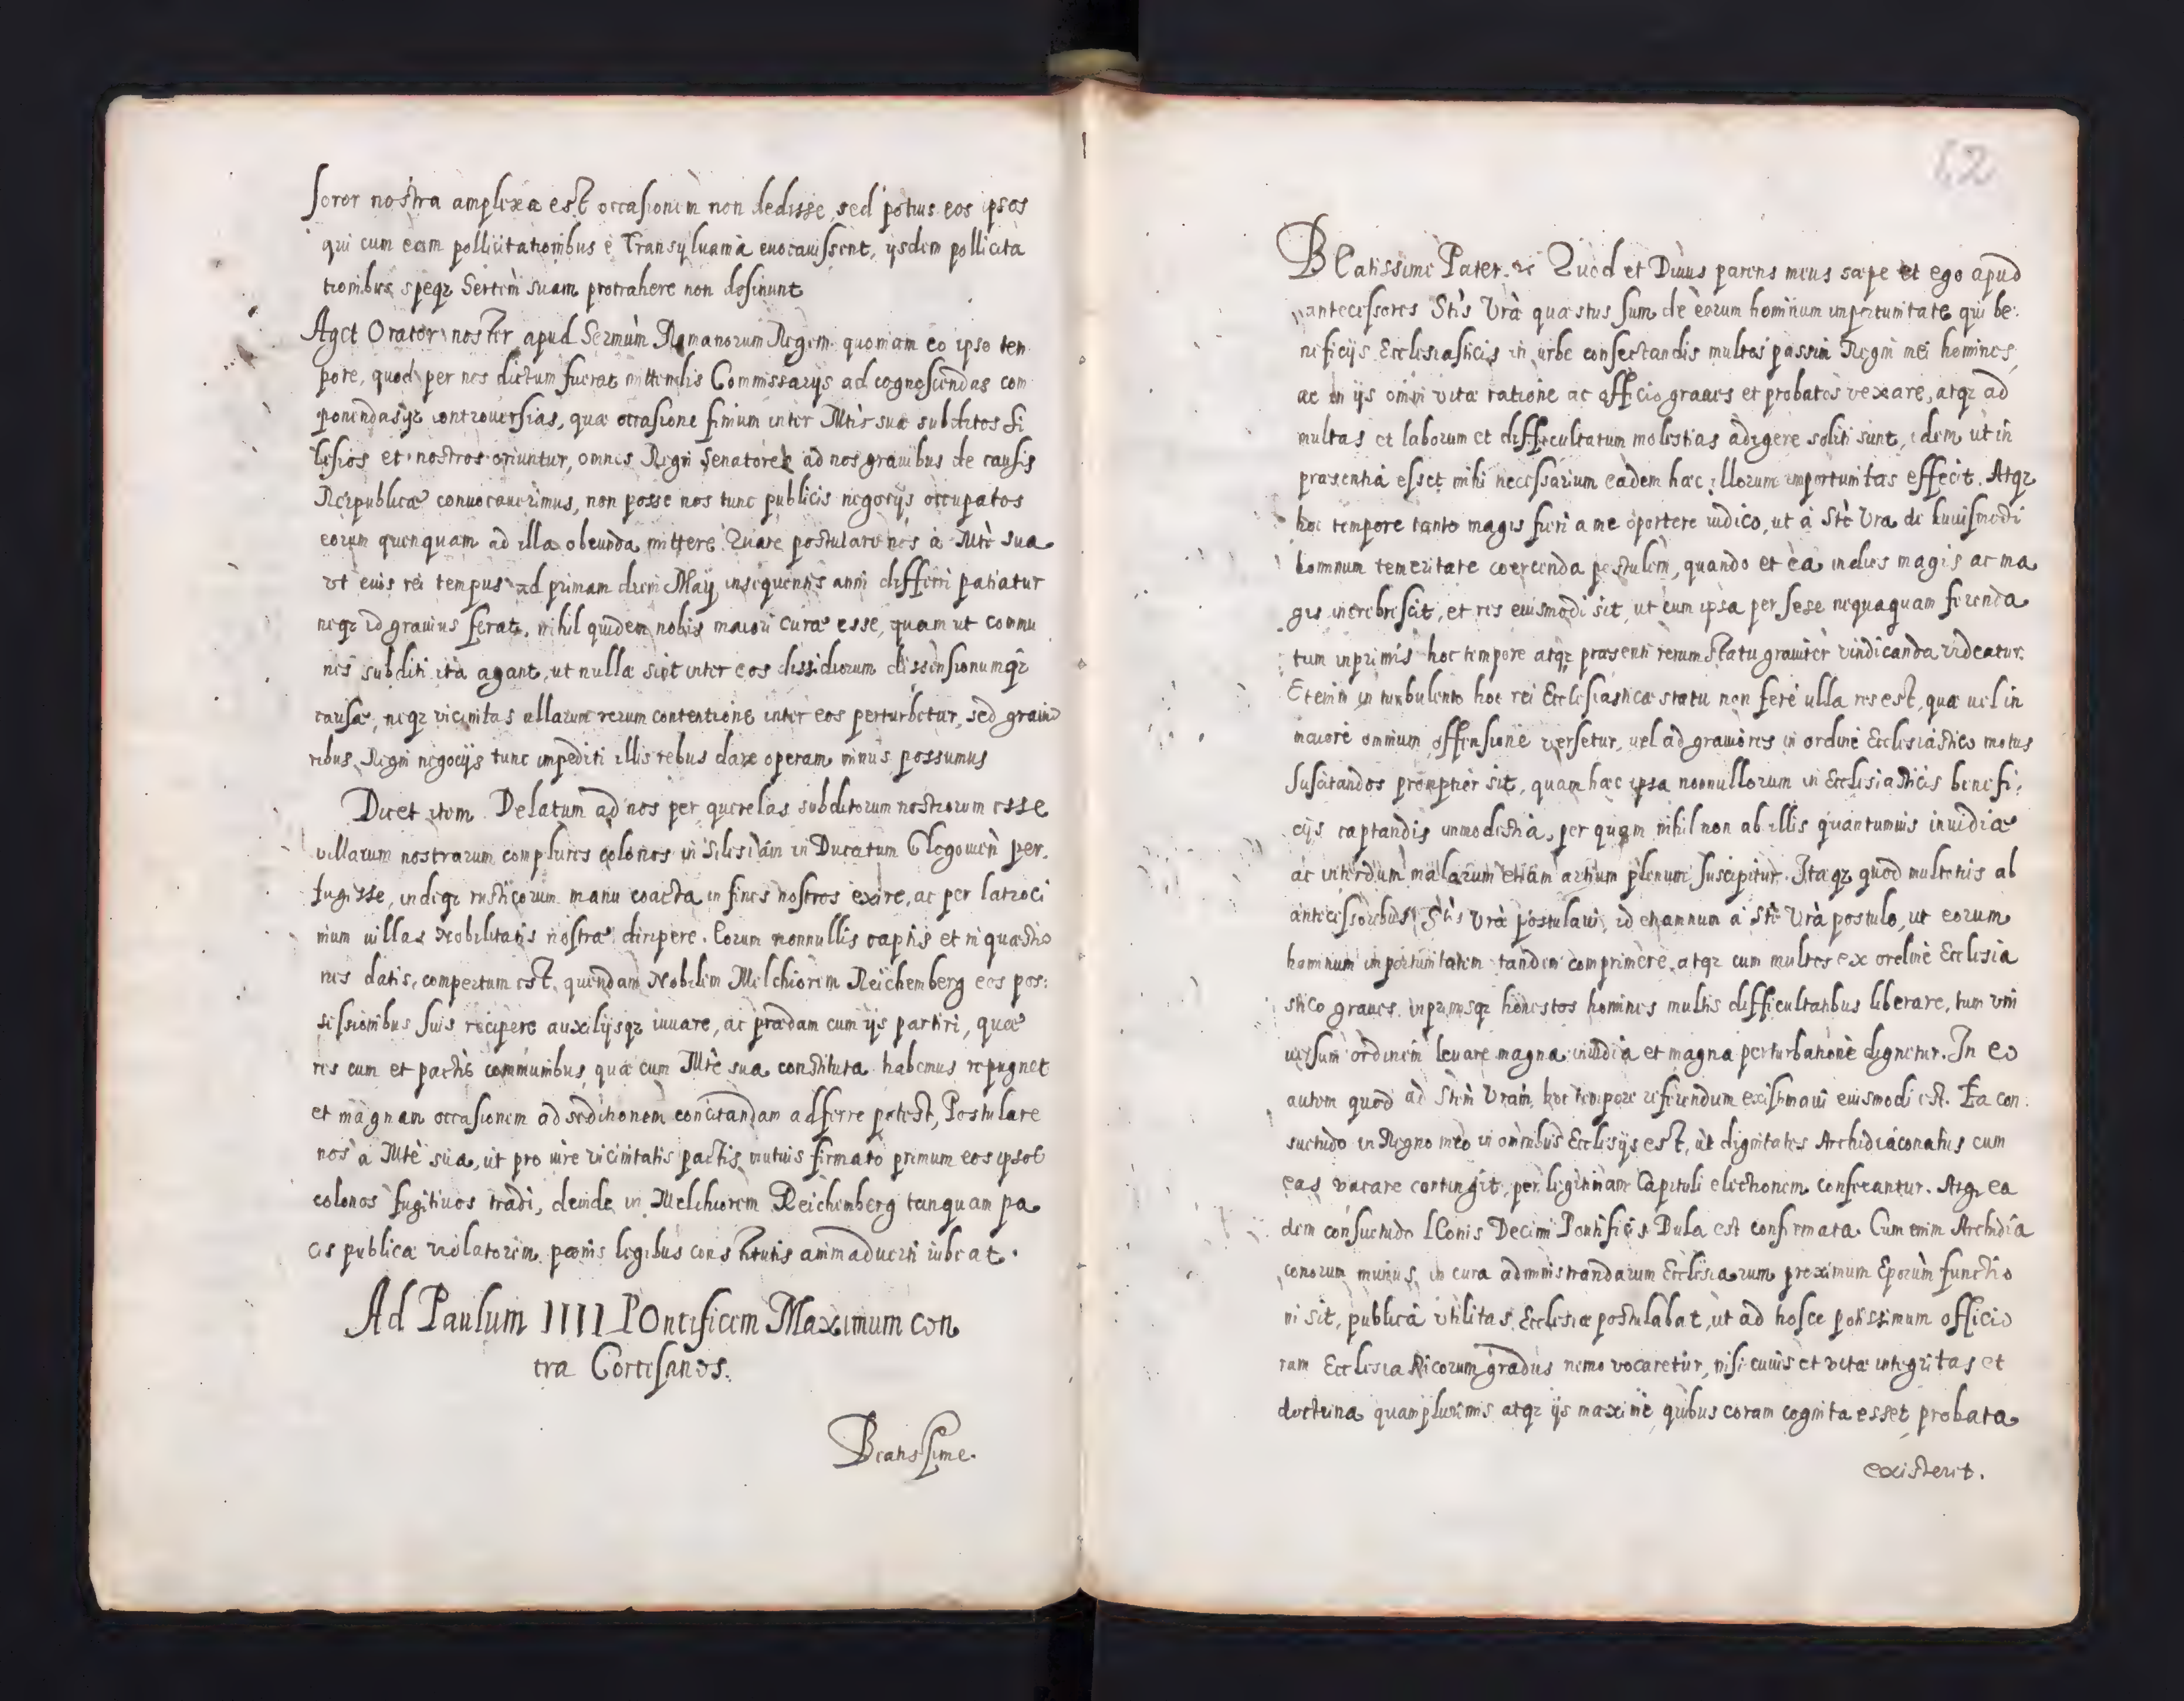 soror nostra amplexa est occasionem non dedisse, sed potius eos ipsos
qui cum eam pollicitationibus è Transyluania euocauissent, ijsdem pollicita
tionibus speqz Sertem suam protrahere non desinunt
Aget Orator noster apud Sermum Romanorum Regem quoniam eo ipso tem
pore, quod per nos dictum fuerat mittendis Commissarijs ad cognoscendas com
ponendasqz controuersias, quæ occasione finium inter Mtis suæ subditos Si
lesios et nostros oriuntur, omnes Regni Senatores ad nos grauibus de causis
Reipublicæ conuocauerimus, non posse nos tunc publicis negocijs occupatos
eorum quenquam ad illa obeunda mittere. Quare postulare nos à Mte sua
vt eius rei tempus ad primam diem Maij insequentis anni differri patiatur
neqz id grauius ferat, nihil quidem nobis maiori curæ esse, quam ut commu
nes subditi ità agant, ut nulla sint inter eos dissidiorum dissensionumqz
causæ, neqz vicinitas ullarum rerum contentione inter eos perturbetur, sed grauio
ribus Regni negocijs tunc impediti illis rebus dare operam minus possumus
Dicet item Delatum ad nos per querelas subditorum nostrorum esse
villarum nostrarum complures colonos in Silesiam in Ducatum Glogouien per,
fugisse, indeqz rusticorum manu coacta in fines nostros exire, ac per latroci
nium uillas Nobilitatis nostræ diripere. Eorum nonnullis captis et in quæstio
nes datis, compertum est, quendam Nobilem Melchiorem Reichemberg eos pos:
sessionibus suis recipere auxilijsqz iuuare, ac prædam cum ijs partiri, quæ
res cum et pactis communibus quæ cum Mte sua constituta habemus repugnet
et magnam occasionem ad seditionem concitandam adferre potest, Postulare
nos à Mte sua, ut pro iure vicinitatis pactis mutuis firmato primum eos ipsos
colonos fugitiuos tradi, deinde in Melchiorem Reichemberg tanquam pa
cis publicæ violatorem pœnis legibus constitutis animaduerti iubeat.
Ad Paulum IIII POntificem Maximum con
tra Cortisanos.
Beatissime.
62
BEatissime Pater. &c Quod et Diuus parens meus sæpe et ego apud
antecessores Stis Vræ quæstus sum de eorum hominum importunitate qui be:
neficijs Ecclesiasticis in urbe consectandis multos passim Regni mei homines,
ac in ijs omni vitæ ratione ac officio graues et probatos vexare, atqz ad
multas et laborum et difficultatum molestias adigere soliti sunt, idem ut in
præsentia esset mihi necessarium eadem hæc illorum importunitas effecit. Atqz
hoc tempore tanto magis fieri a me oportere iudico, ut à Ste Vra de huiusmodi
hominum temeritate coercenda postulem, quando et ea indies magis ac ma
gis increbrescit, et res eiusmodi sit, ut cum ipsa per sese nequaquam ferenda
tum inprimis hoc tempore atqz præsenti rerum statu grauiter vindicanda videatur.
Etenim in turbulento hoc rei Ecclesiasticæ statu non ferè ulla res est, quæ uel in
maiore omnium offensione versetur, uel ad grauiores in ordine Ecclesiastico motus
suscitandos promptior sit, quam hæc ipsa nonnullorum in Ecclesiasticis benefi:
cijs captandis immodestia, per quam nihil non ab illis quantumuis inuidiæ
ac interdum malarum etiam artium plenum suscipitur. Itaqz quod multotiens ab
antecessoribus Stis Vræ postulaui, id etiamnum à Ste Vra postulo, ut eorum
hominum importunitatem tandem comprimere, atqz cum multos ex ordine Ecclesia
stico graues inprimisqz honestos homines multis difficultatibus liberare, tum vni
uersum ordinem leuare magna inuidia et magna perturbatione dignetur. In eo
autem quod ad Stem Vram hoc tempore referendum existimaui eiusmodi est. Ea con:
suetudo in Regno meo in omnibus Ecclesijs est, ut dignitates Archidiaconatus cum
eas vacare contingit, per legitimam Capituli electionem conferantur. Atqz ea
dem consuetudo LEonis Decimi Pontificis Bula est confirmata. Cum enim Archidia
conorum munus in cura administrandarum Ecclesiarum proximum Eporum functio
ni sit, publica vtilitas Ecclesiæ postulabat, ut ad hosce potissimum officio
rum Ecclesiasticorum gradus nemo vocaretur, nisi cuius et vitæ integritas et
doctrina quamplurimis atqz ijs maxime quibus coram cognita esset probata
existerit.